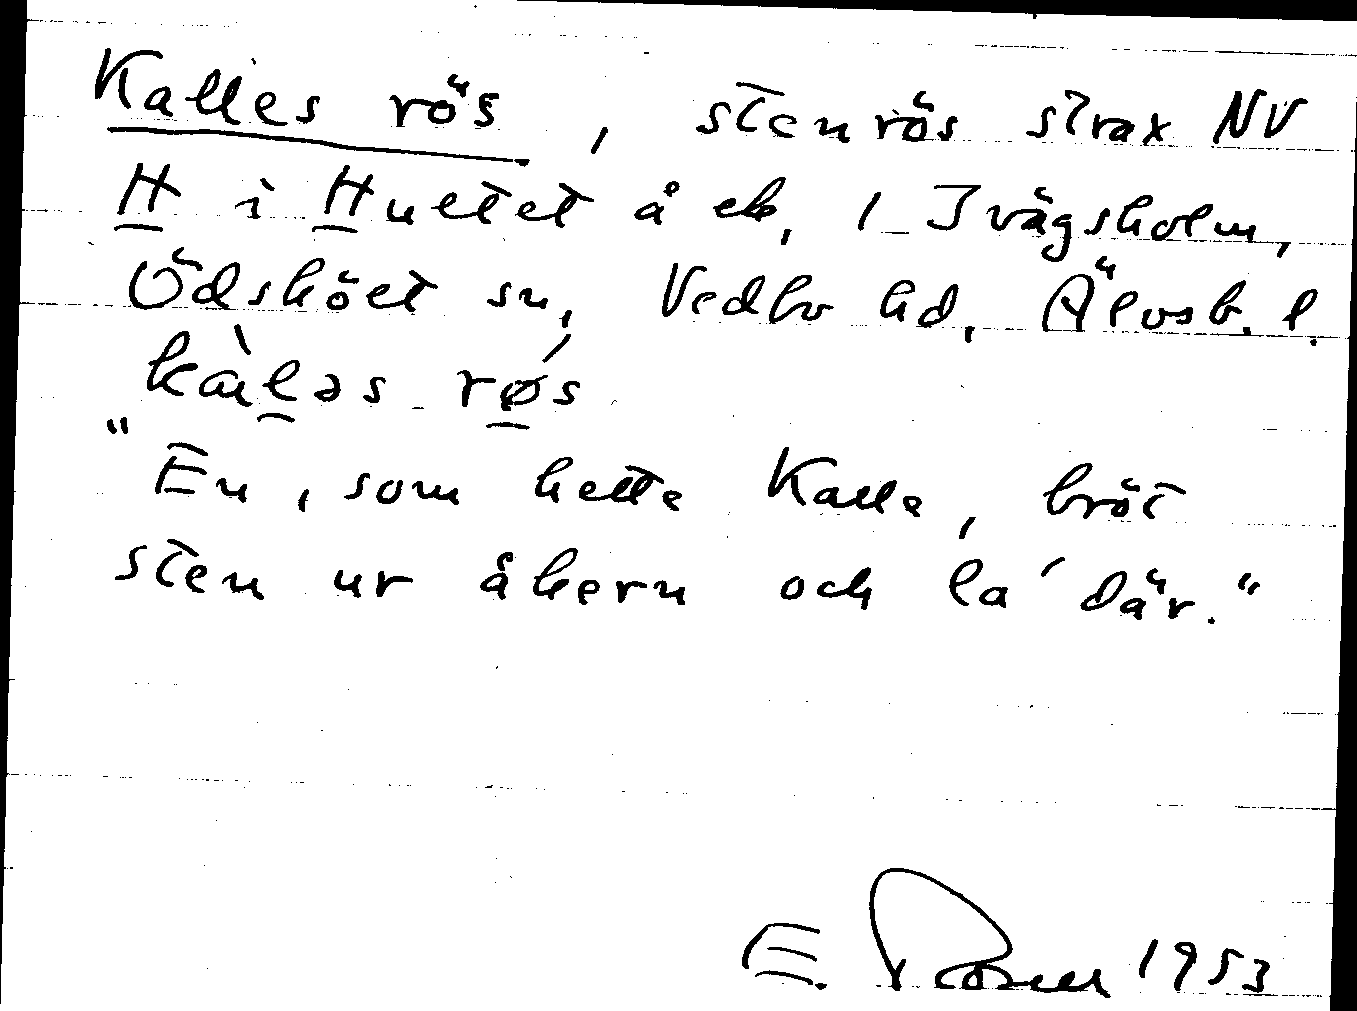 Kalles rös, stenrös strax NV
H i Hultet å ek, 1 Ivägsholm,
Ödsköet sn, Vedbo hd, Älvsb. l.
kàləs rǿs
"En, som hette Kalle, bröt
sten ur åkern och la' där."
E. Rosell 1953